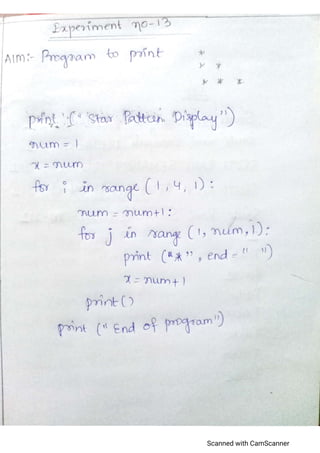 Experiment no-13
AIM:- Program to print *
* *
* * *
print ("Star Pattern Display")
num = 1
x = num
for i in range (1, 4, 1):
num = num+1:
for j in range (1, num, 1):
print ("*", end = " ")
x = num+1
print()
print ("End of program")
Scanned with CamScanner